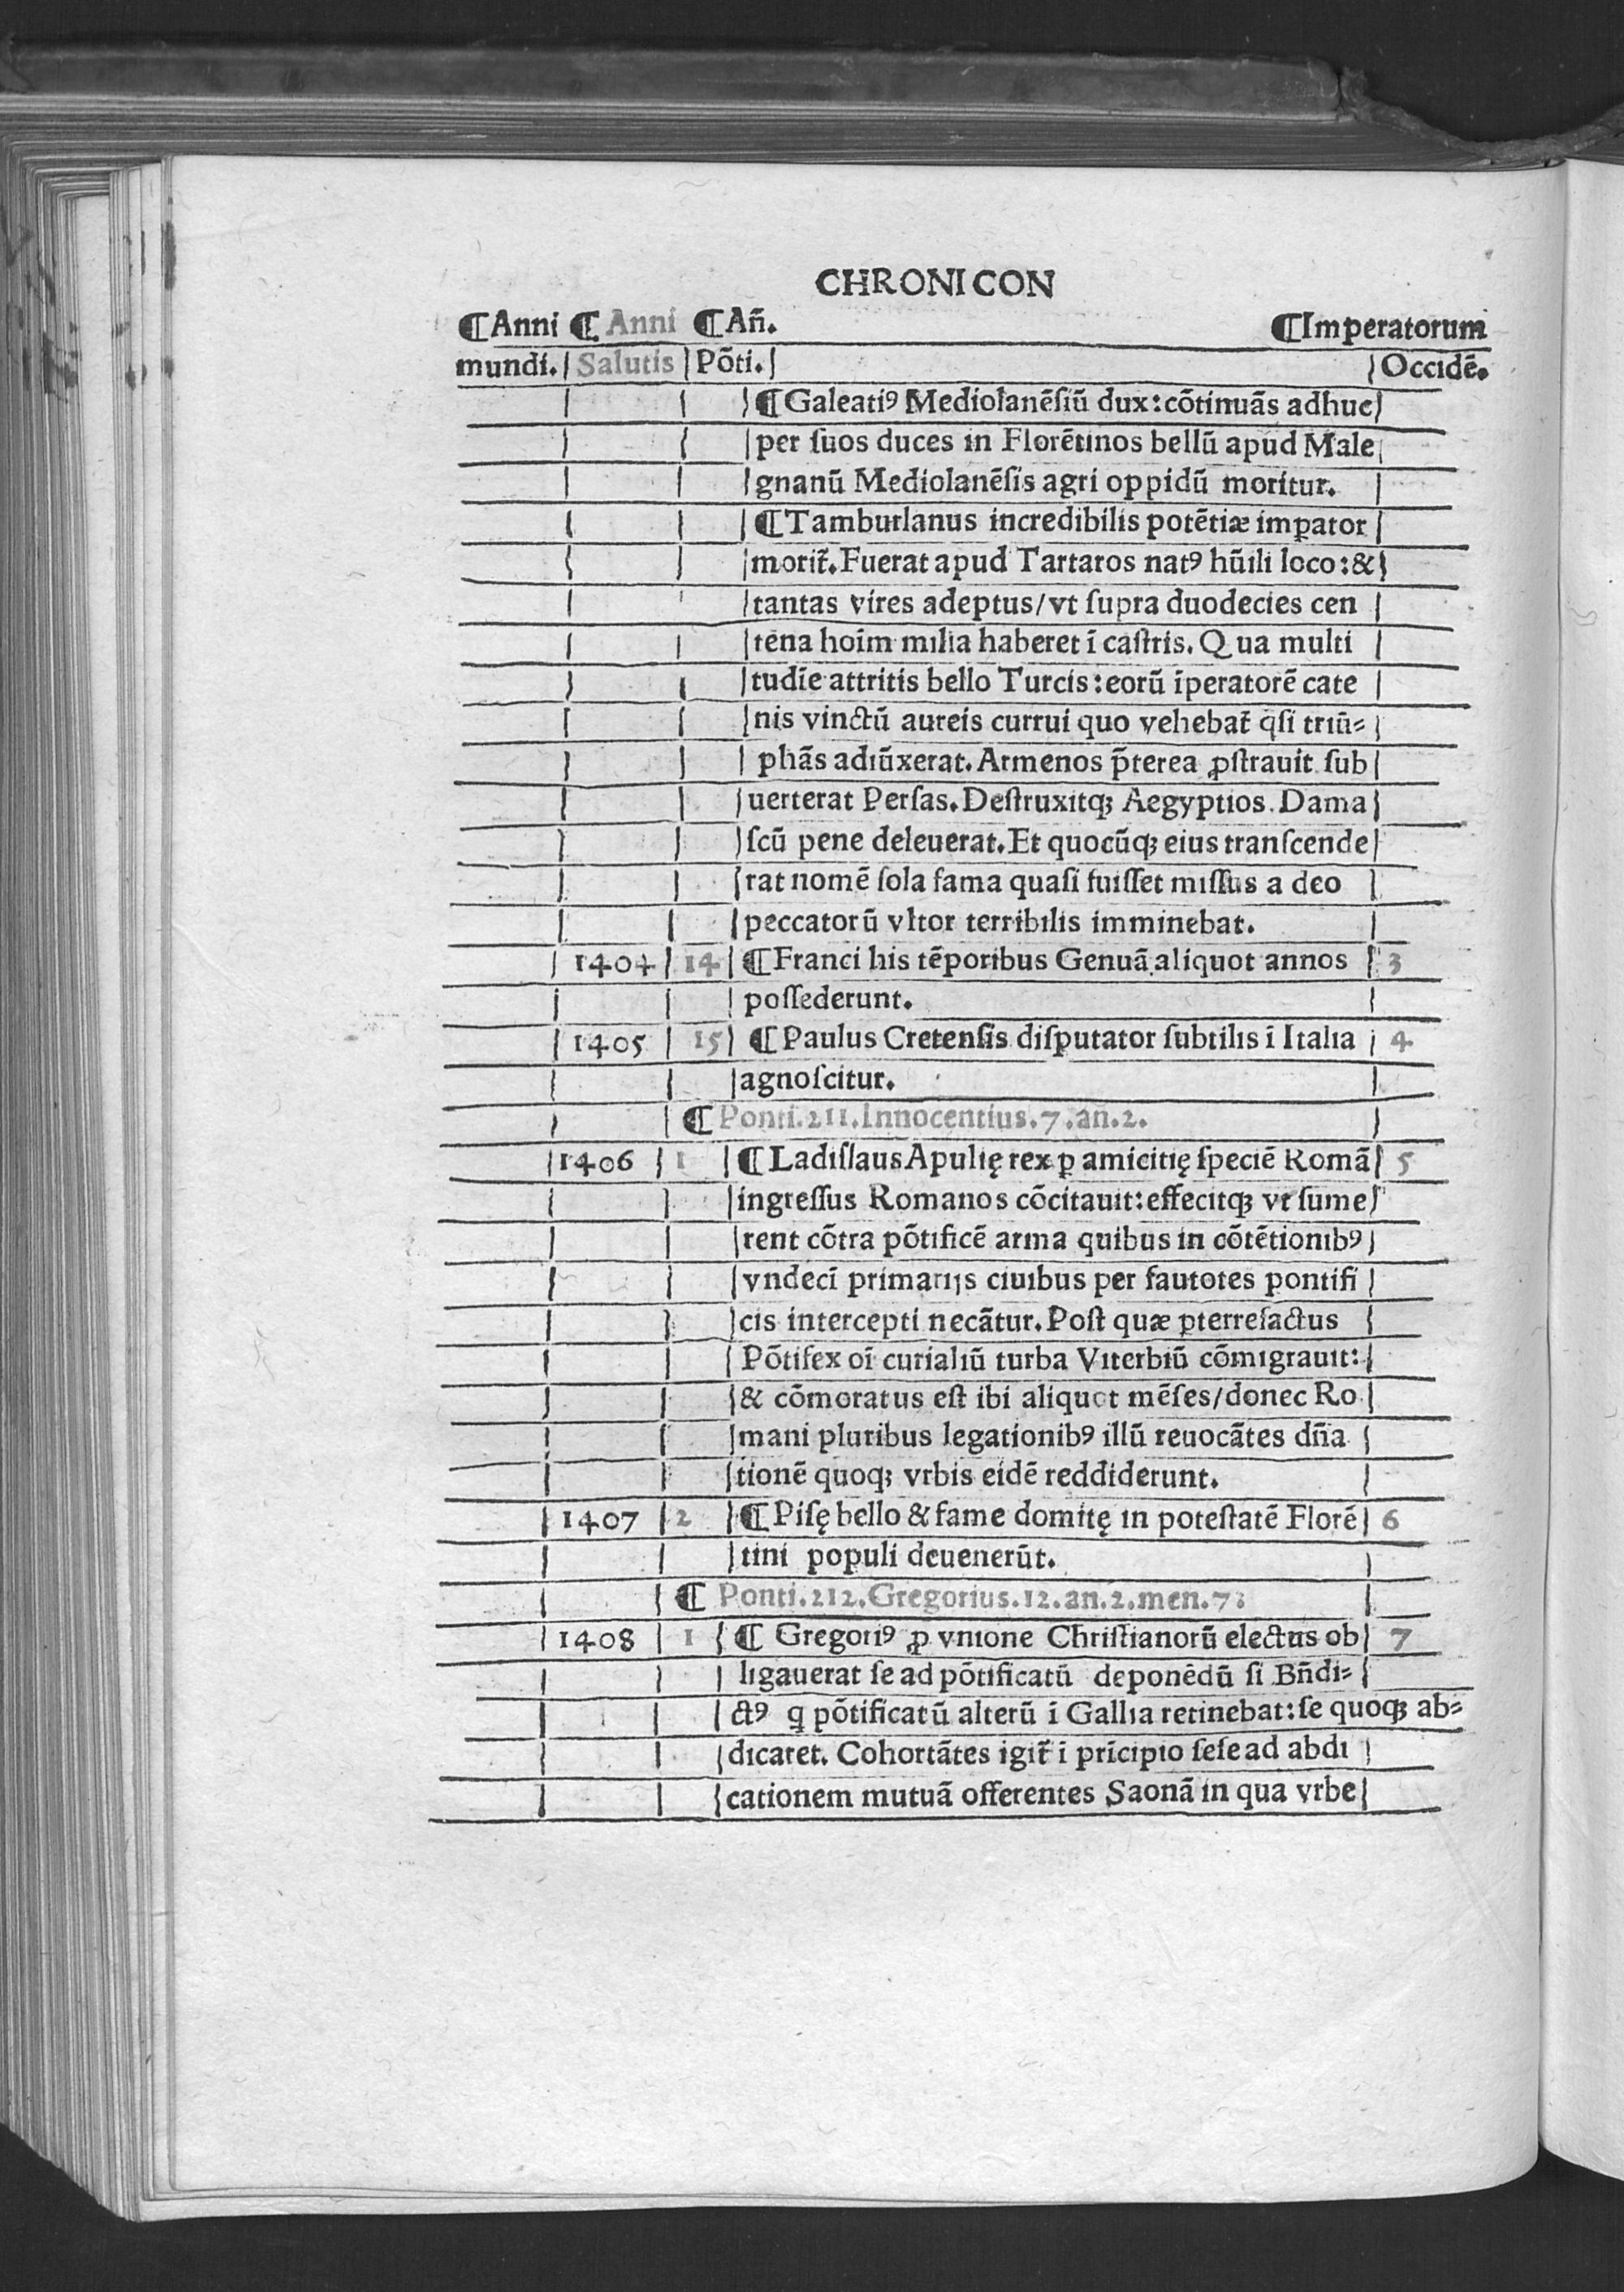 CHRONICON
¶Anni ¶ Anni ¶Añ. ¶Imperatorum
mundi. Salutis Põti. Occidē.
¶Galeatiꝰ Mediolanēſiũ dux: cõtinuãs adhuc
per ſuos duces in Florētinos bellũ apud Male
gnanũ Mediolanēſis agri oppidũ moritur.
¶Tamburlanus incredibilis potētiæ imꝑator
morit̃. Fuerat apud Tartaros natꝰ hũili loco: &
tantas vires adeptus/vt ſupra duodecies cen
tena hoĩm milia haberet ĩ caſtris. Qua multi
tudĩe attritis bello Turcis: eorũ ĩperatorē cate
nis vinctũ aureis currui quo vehebat̃ q̃ſi triũ-
phãs adiũxerat. Armenos p̃terea ꝓſtravit ſub
uerterat Perſas. Deſtruxitqꝫ Aegyptios. Dama
ſcũ pene deleuerat. Et quocũqꝫ eius tranſcende
rat nomē ſola fama quaſi fuiſſet miſſus a deo
peccatorũ vltor terribilis imminebat.
1404 14 ¶Franci his tēporibus Genuã aliquot annos 3
poſſederunt.
1405 15 ¶Paulus Cretenſis diſputator ſubtilis ĩ Italia 4
agnoſcitur.
¶ Ponti.211.Innocentius.7.an.2.
1406 1 ¶Ladiſlaus Apulię rex ꝑ amicitię ſpeciē Romã 5
ingreſſus Romanos cõcitauit: effecitqꝫ vt ſume
rent cõtra põtificē arma quibus in cõtētionibꝰ
vndecĩ primarijs ciuibus per fautotes pontifi
cis intercepti necãtur. Poſt quæ ꝑterrefactus
Põtifex oĩ curialiũ turba Viterbiũ cõmigrauit:
& cõmoratus eſt ibi aliquot mēſes/donec Ro
mani pluribus legationibꝰ illũ reuocãtes dña
tionē quoqꝫ vrbis eidē reddiderunt.
1407 2 ¶Piſę bello & fame domitę in poteſtatē Florē 6
tini populi deuenerũt.
¶ Ponti.212.Gregorius.12.an.2.men.7:
1408 1 ¶ Gregoriꝰ ꝓ vnione Chriſtianorũ electus ob 7
ligauerat ſe ad põtificatũ deponēdũ ſi Bñdi-
ctꝰ q̃ põtificatũ alterũ ĩ Gallia retinebat: ſe quoqꝫ ab-
dicaret. Cohortãtes igit̃ ĩ prĩcipio ſeſe ad abdi
cationem mutuã offerentes Saonã in qua vrbe